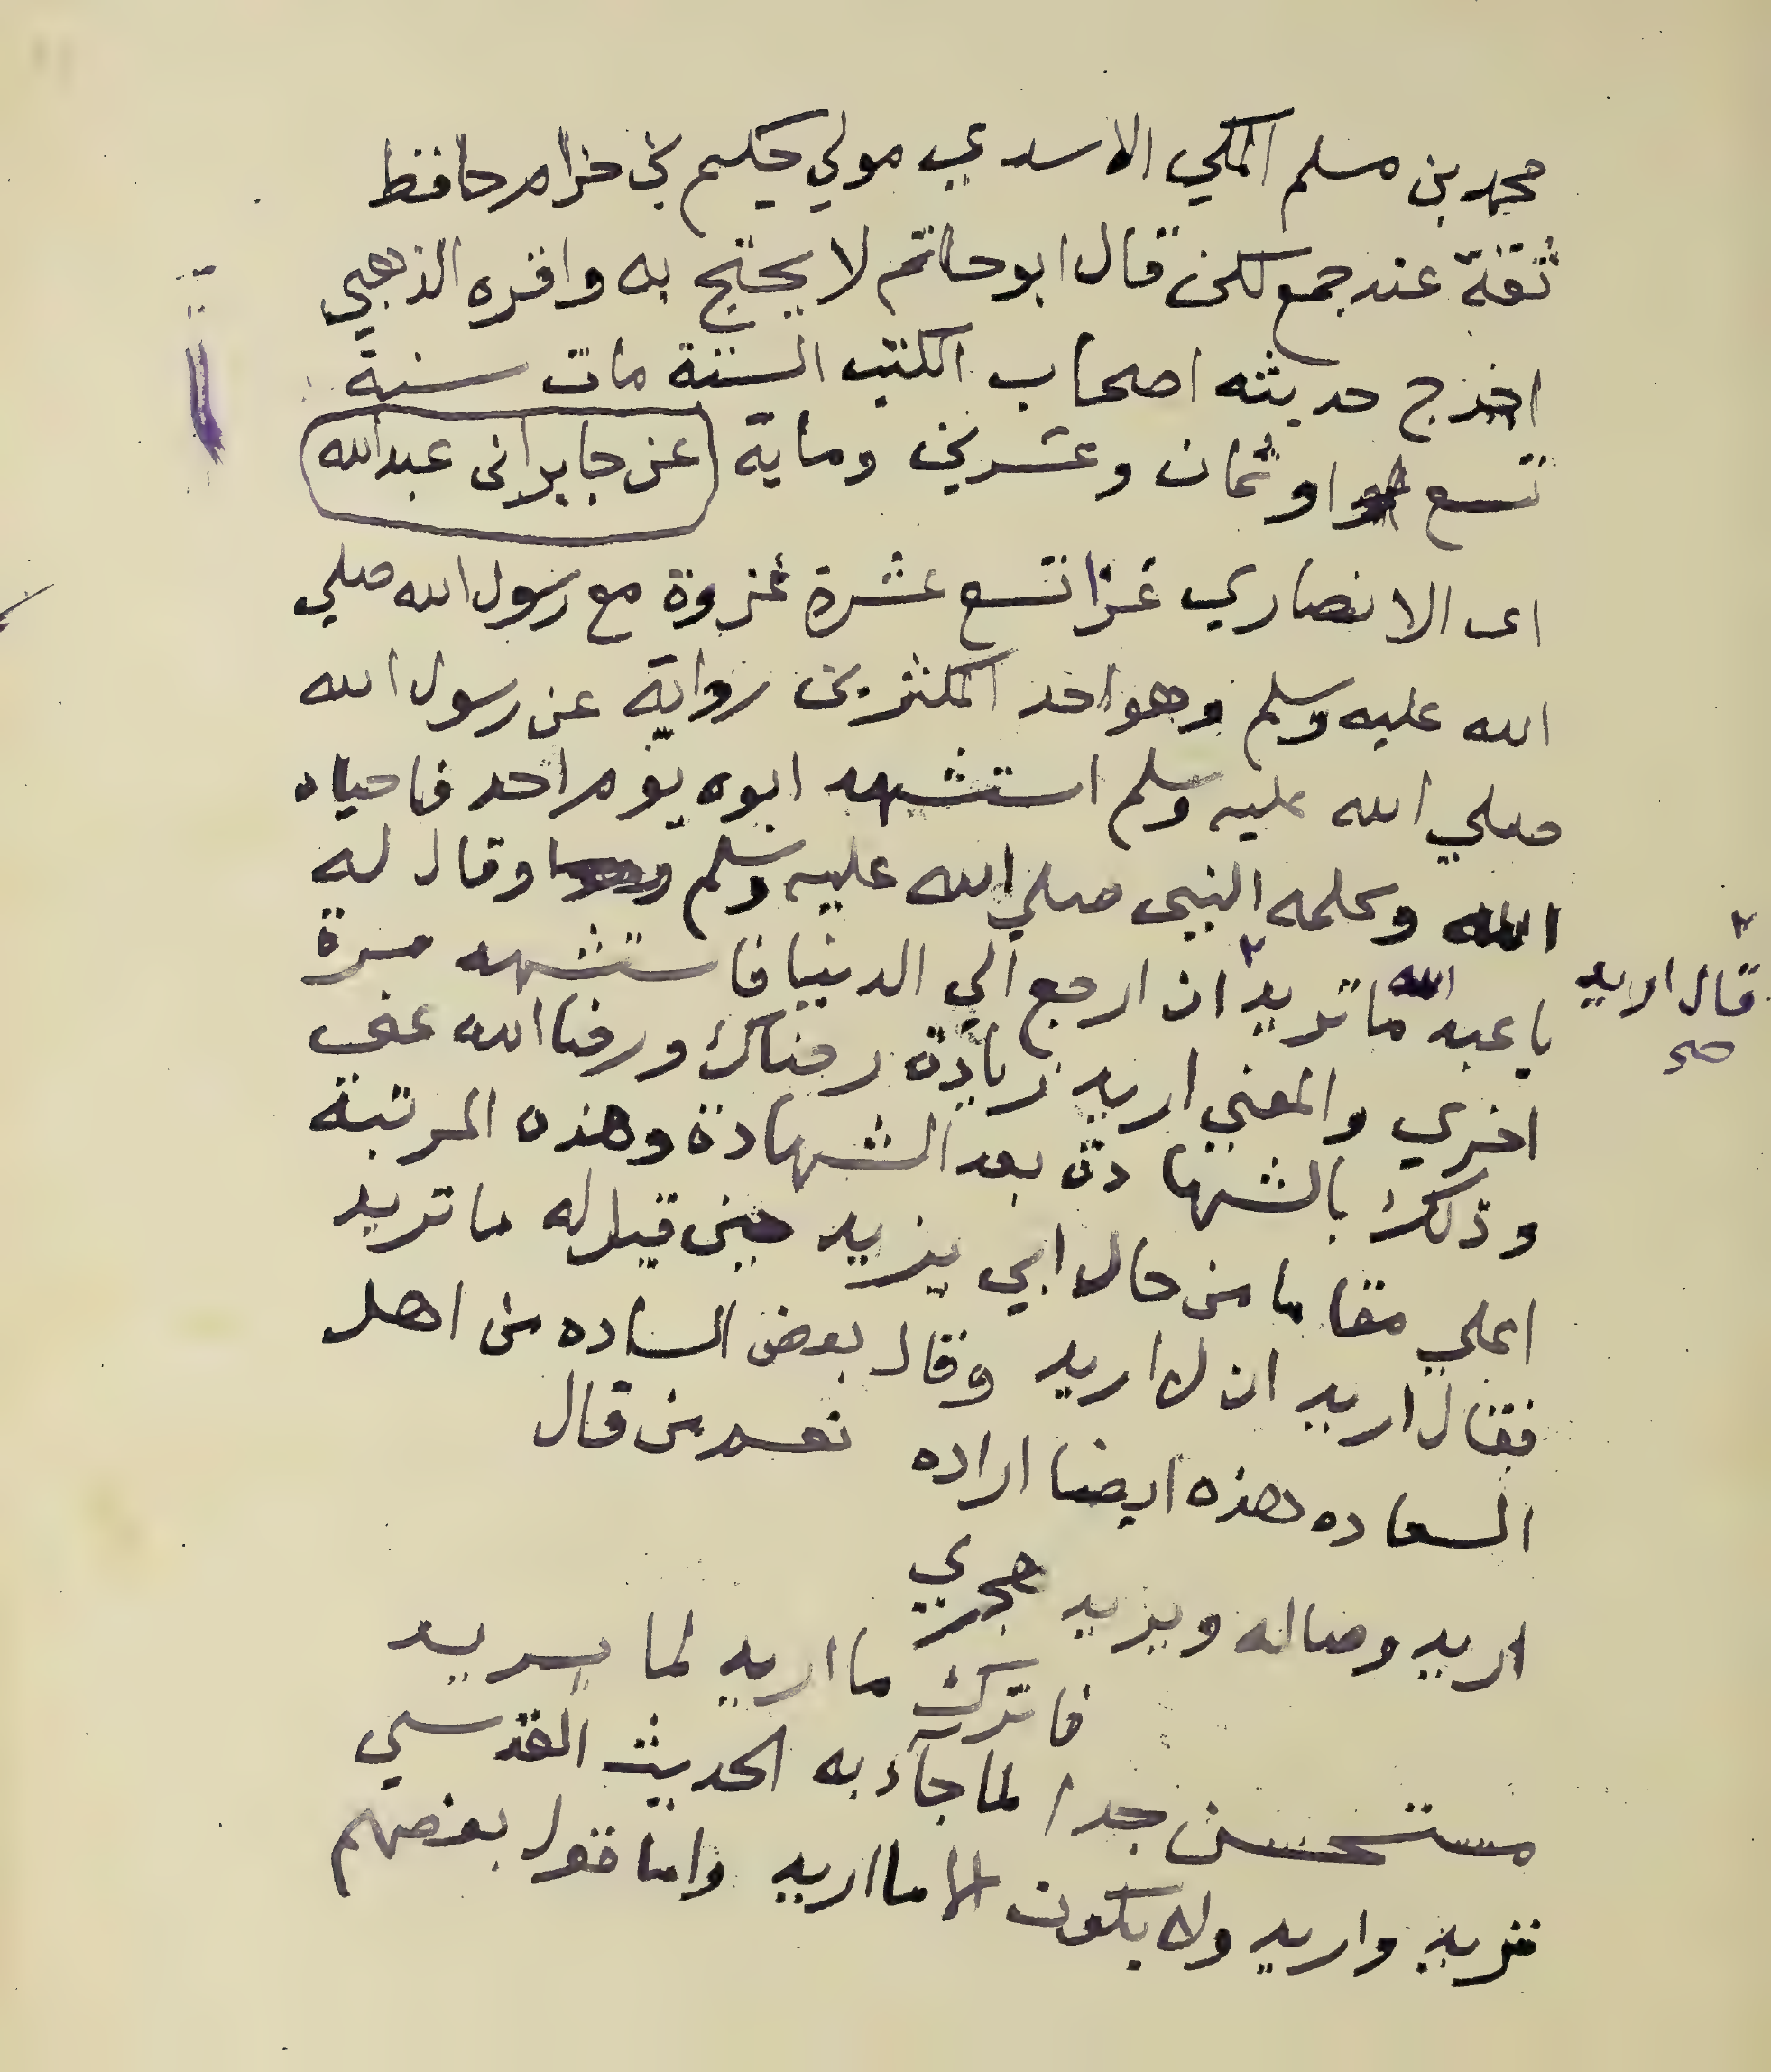 محمد بن مسلم المكي الاسدي مولي حكيم بن حزام حافظ
ثقة عند جمع لكن قال ابو حاتم لا يحتج به واقره الذهبي
اخرج حديثه اصحاب الكتب الستة مات سنة
تسع او ثمان وعشرين وماية عن جابر ابن عبد الله
اى الانصاري غزا تسع عشرة غزوة مع رسول الله صلي
الله عليه وسلم وهو احد المكثرين رواية عن رسول الله
صلي الله عليه وسلم استشهد ابوه يوم احد فاحياه
الله وكلمه النبى صلي الله عليه وسلم وقال له
يا عبد الله ما تريد ان ارجع الي الدنيا فاستشهد مرة
قال اريد
صح
اخري والمعني اريد زيادة رضاك ورضا الله عنى
وذلك بالشهادة بعد الشهادة وهذه المرتبة
اعلي مقاما من حال ابي يزيد حين قيل له ما تريد
فقال اريد ان لا اريد وقال بعض الساده من اهل
السعاده هذه ايضا اراده نعم من قال
اريد وصاله ويريد هجري
فاترك ما اريد لما يريد
مستحسن جدا لما جآء به الحديث القدسي
تريد واريد ولا يكون الا ما اريد واما قول بعضهم